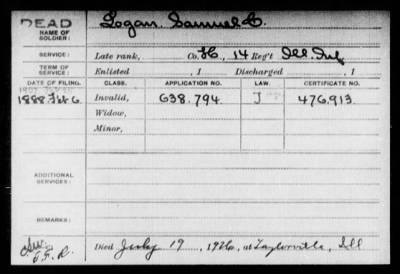 DEAD
NAME OF SOLDIER: Logan, Samuel C.
SERVICE: Late rank, Co. H, 14 Reg't Ill. Inf.
TERM OF SERVICE: Enlisted , 1 Discharged , 1
DATE OF FILING. CLASS. APPLICATION NO. LAW. CERTIFICATE NO.
1888. Feb 6. Invalid, 638.794 J 476.913
Widow,
Minor,
ADDITIONAL SERVICES:
REMARKS:
Died July 19, 1926, at Taylorville, Ill